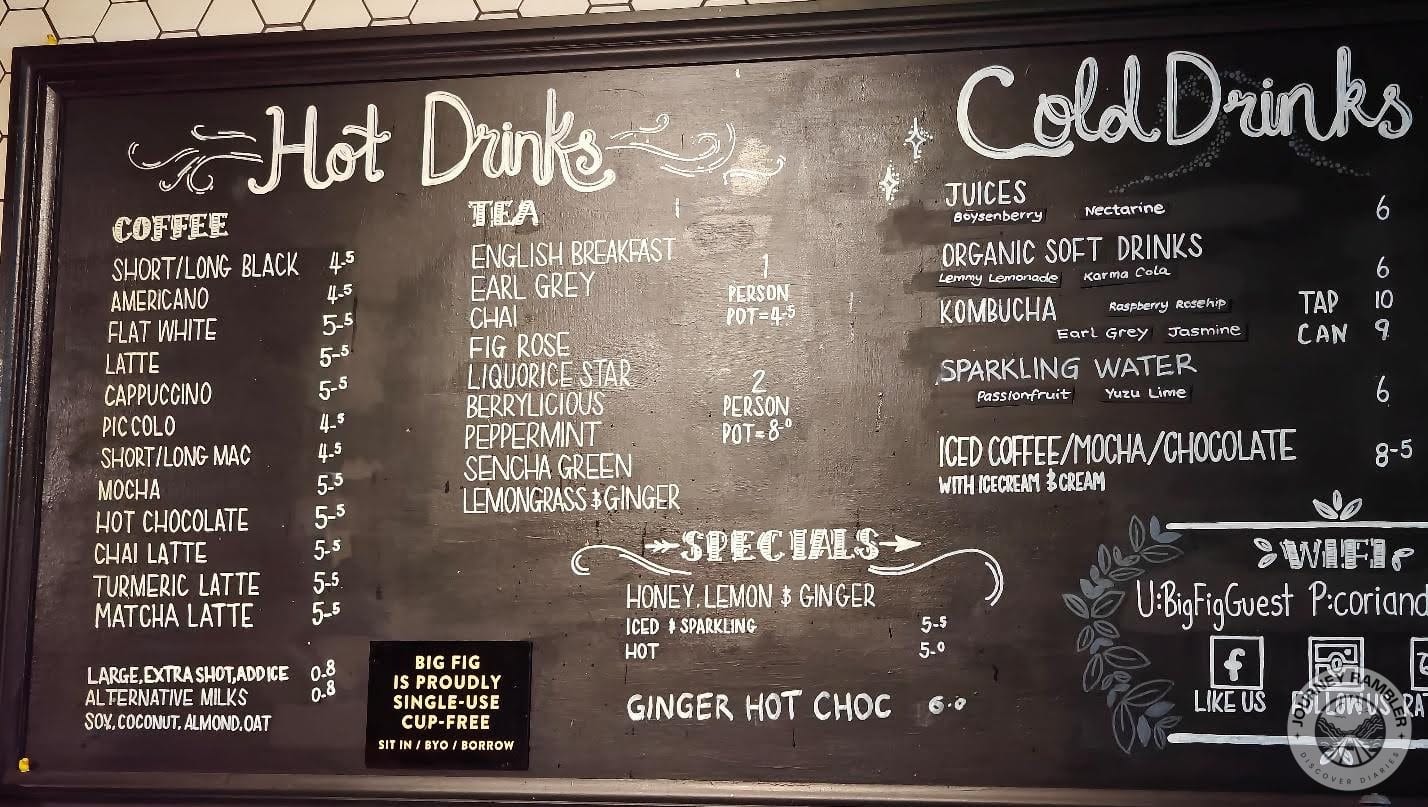 Hot Drinks
COFFEE
SHORT/LONG BLACK 4-5
AMERICANO 4-5
FLAT WHITE 5-5
LATTE 5-5
CAPPUCCINO 5-5
PICCOLO 4-5
SHORT/LONG MAC 4-5
MOCHA 5-5
HOT CHOCOLATE 5-5
CHAI LATTE 5-5
TURMERIC LATTE 5-5
MATCHA LATTE 5-5
LARGE, EXTRA SHOT, ADD ICE 0.8
ALTERNATIVE MILKS 0.8
SOY, COCONUT, ALMOND, OAT
BIG FIG
IS PROUDLY
SINGLE-USE
CUP-FREE
SIT IN / BYO / BORROW
TEA
ENGLISH BREAKFAST
EARL GREY
CHAI
FIG ROSE
LIQUORICE STAR
BERRYLICIOUS
PEPPERMINT
SENCHA GREEN
LEMONGRASS & GINGER
1
PERSON
POT=4-5
2
PERSON
POT=8-0
SPECIALS
HONEY, LEMON & GINGER
ICED & SPARKLING 5-5
HOT 5-0
GINGER HOT CHOC 6-0
Cold Drinks
JUICES 6
Boysenberry Nectarine
ORGANIC SOFT DRINKS 6
Lemmy Lemonade Karma Cola
KOMBUCHA Raspberry Rosehip TAP 10
Earl Grey Jasmine CAN 9
SPARKLING WATER 6
Passionfruit Yuzu Lime
ICED COFFEE/MOCHA/CHOCOLATE 8-5
WITH ICECREAM & CREAM
WIFI
U:BigFigGuest P:coriand
LIKE US FOLLOW US RAT
JOURNEY RAMBLER
DISCOVER DIARIES